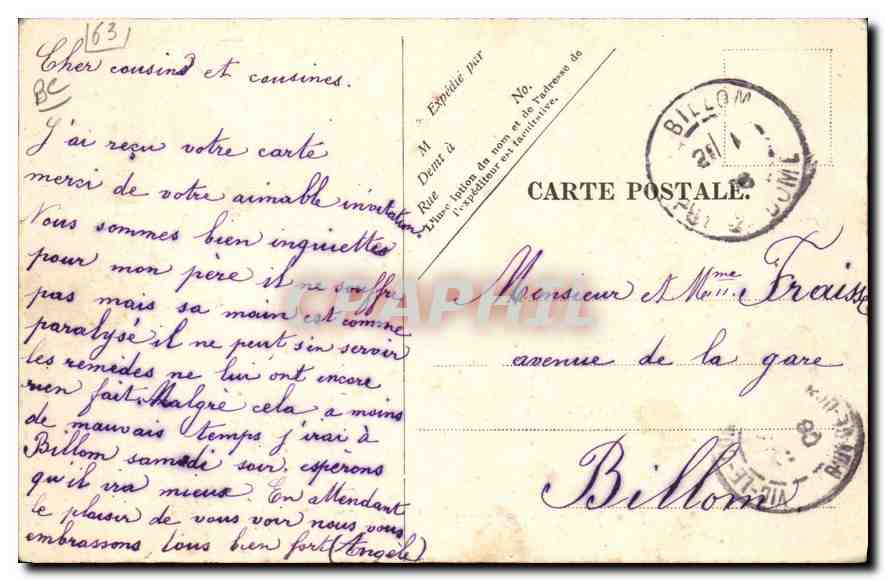 63
BC
Cher cousins et cousines.
J'ai reçu votre carte
merci de votre aimable invitation
Nous sommes bien inquiettes
pour mon père il ne souffre
pas mais sa main est comme
paralysé il ne peut s'en servir
les remèdes ne lui ont encore
rien fait. Malgré cela à moins
de mauvais temps j'irai à
Billom samedi soir. espérons
qu'il ira mieux. En attendant
le plaisir de vous voir nous vous
embrassons tous bien fort (Angèle)
Expédié par
M
No.
Demt à
Rue
L'inscription du nom et de l'adresse de
l'expéditeur est facultative.
CARTE POSTALE.
BILLOM
PUY-DE-DOME
Monsieur et Mme Fraisse
avenue de la gare
Billom
VIC-LE-
PUY-DE-DOME
CPAPHIL